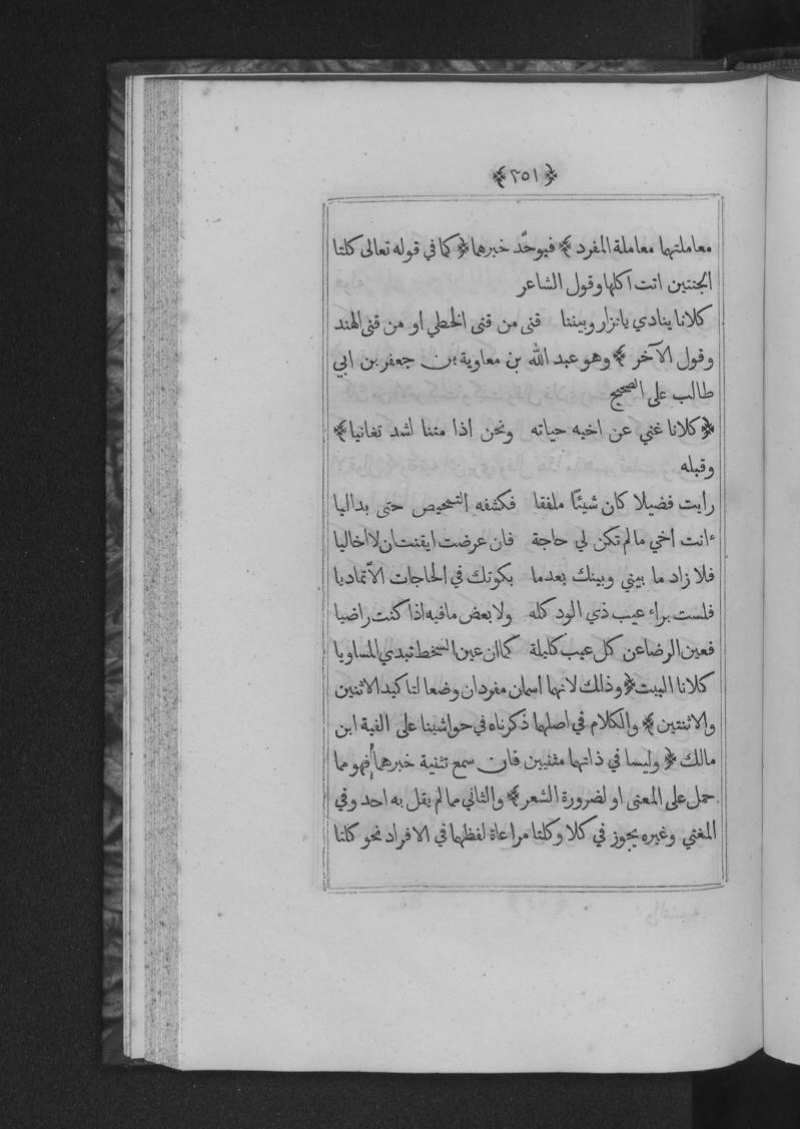 ﴿٢٥١﴾
معاملتهما معاملة المفرد ﴾ فيوحّد خبرهما ﴿ كما في قوله تعالى كلتا
الجنتين اتت اكلها وقول الشاعر
كلانا ينادي يانزار وبيننا قنى من قنى الخطي او من قنى الهند
وقول الآخر ﴾ وهو عبد الله بن معاوية بن جعفر بن ابي
طالب على الصحيح
﴿ كلانا غني عن اخيه حياته ونحن اذا متنا اشد تغانيا ﴾
وقبله
رأيت فضيلا كان شيئًا ملففا فكشفه التمحيص حتى بداليا
ءانت اخي مالم تكن لي حاجة فان عرضت ايقنت ان لا اخاليا
فلا زاد ما بيني وبينك بعدما بكوتك في الحاجات الا تماديا
فلست براء عيب ذي الود كله ولا بعض مافيه اذا كنت راضيا
فعين الرضا عن كل عيب كليلة كما ان عين السخط تبدي المساويا
كلانا البيت ﴿ وذلك لانهما اسمان مفردان وضعا لتاكيد الاثنين
والاثنتين ﴾ والكلام في اصلهما ذكرناه في حواشينا على الفية ابن
مالك ﴿ وليسا في ذاتهما مثنيين فان سمع تثنية خبرهما فهو مما
حمل على المعنى او لضرورة الشعر ﴾ والثاني مما لم يقل به احد وفي
المغني وغيره يجوز في كلا وكلتا مراعاة لفظهما في الافراد نحو كلتا